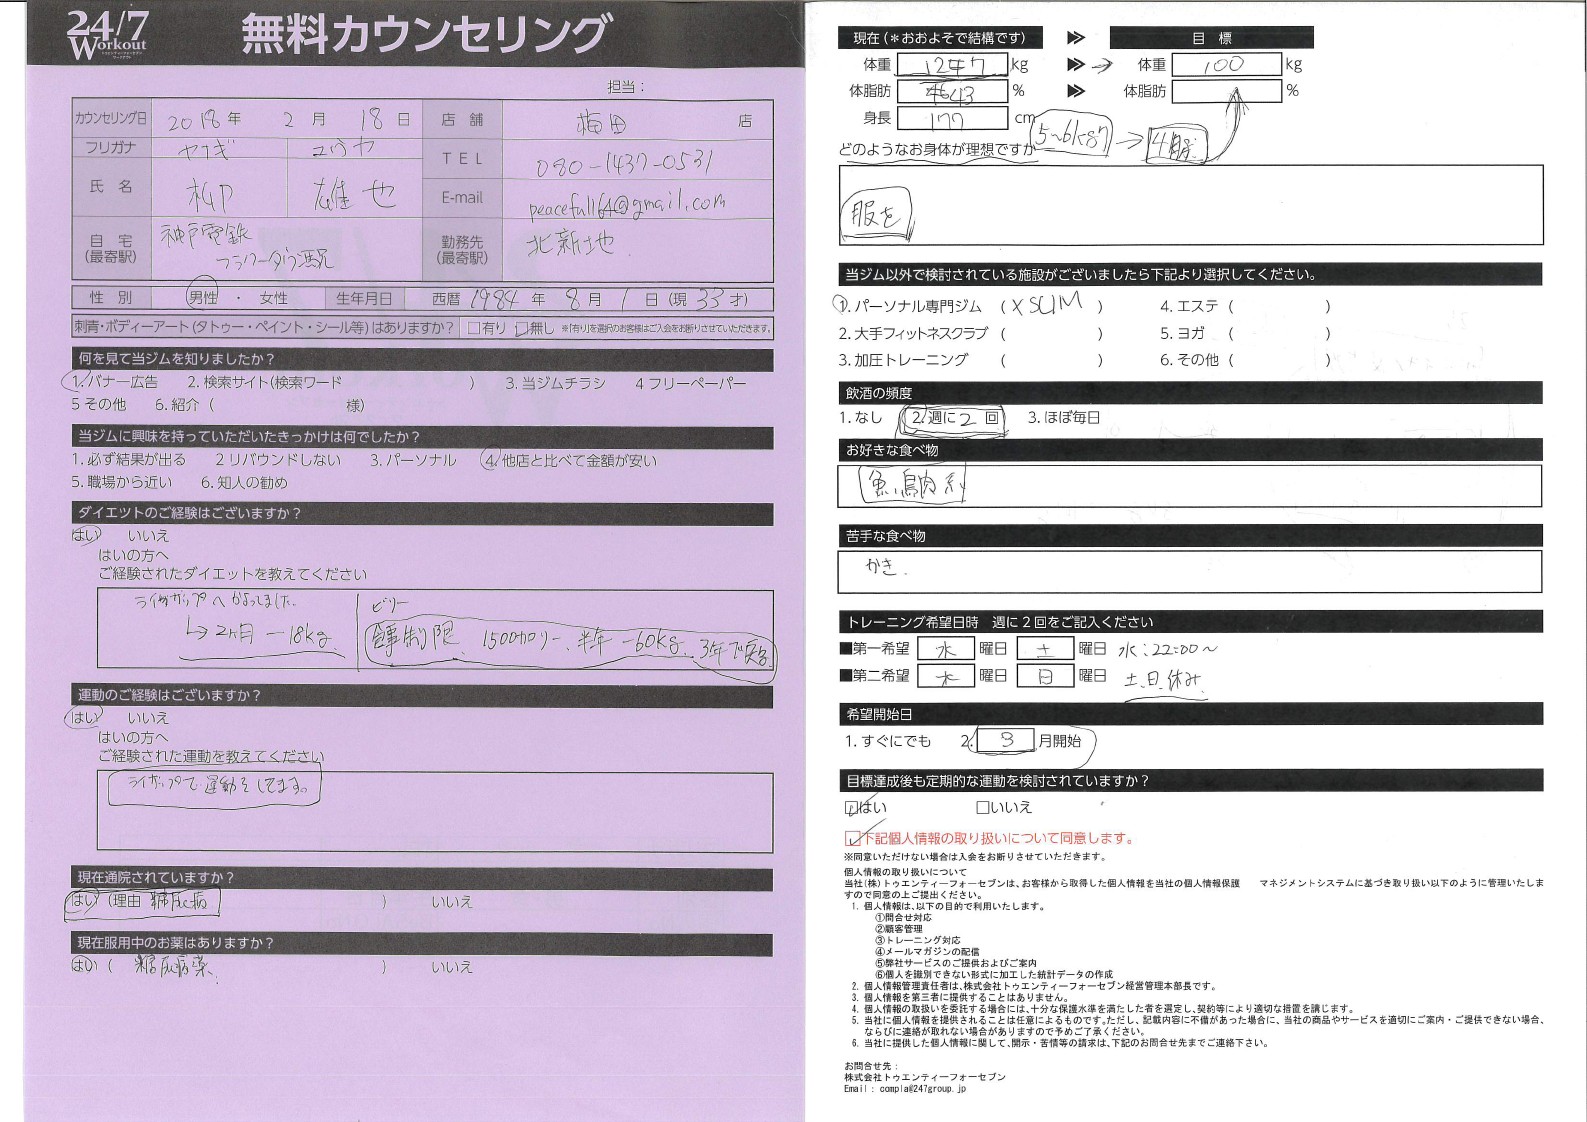 24/7
Workout
トゥエンティーフォーセブン
ワークアウト
無料カウンセリング
担当：
カウンセリング日 2018年 2月 18日 店舗 梅田 店
フリガナ ヤナギ ユウヤ
氏名 柳 雄也
TEL 080-1437-0531
E-mail peacefull64@gmail.com
自宅(最寄駅) 神戸電鉄
フラワータウン駅
勤務先(最寄駅) 北新地
性別 男性 ・ 女性 生年月日 西暦 1984年 8月 1日(現 33才)
刺青・ボディーアート(タトゥー・ペイント・シール等)はありますか？ □有り □無し ※「有り」を選択のお客様はご入会をお断りさせていただきます。
何を見て当ジムを知りましたか？
1. バナー広告 2. 検索サイト(検索ワード ) 3. 当ジムチラシ 4 フリーペーパー
5 その他 6. 紹介 ( 様)
当ジムに興味を持っていただいたきっかけは何でしたか？
1. 必ず結果が出る 2 リバウンドしない 3. パーソナル 4. 他店と比べて金額が安い
5. 職場から近い 6. 知人の勧め
ダイエットのご経験はございますか？
はい いいえ
はいの方へ
ご経験されたダイエットを教えてください
ライザップへかよってました。
↳2ヶ月 －18kg
ビリー
食事制限 1500カロリー、半年 －60kg、3年で戻る
運動のご経験はございますか？
はい いいえ
はいの方へ
ご経験された運動を教えてください
ライザップで運動をしてます。
現在通院されていますか？
はい (理由 糖尿病 ) いいえ
現在服用中のお薬はありますか？
はい ( 糖尿病薬. ) いいえ
現在(＊おおよそで結構です) 目標
体重 124.7 kg → 体重 100 kg
体脂肪 46.43 % 体脂肪 %
身長 177 cm
5～6kg → 4ヶ月
どのようなお身体が理想ですか
服を
当ジム以外で検討されている施設がございましたら下記より選択してください。
1. パーソナル専門ジム ( XSLIM ) 4. エステ ( )
2. 大手フィットネスクラブ ( ) 5. ヨガ ( )
3. 加圧トレーニング ( ) 6. その他 ( )
飲酒の頻度
1. なし 2. 週に 2 回 3. ほぼ毎日
お好きな食べ物
魚、鳥肉系
苦手な食べ物
かき.
トレーニング希望日時 週に２回をご記入ください
■第一希望 水 曜日 土 曜日 水：22:00～
■第二希望 水 曜日 日 曜日 土、日、休み.
希望開始日
1. すぐにでも 2. 3 月開始
目標達成後も定期的な運動を検討されていますか？
☑はい □いいえ
☑下記個人情報の取り扱いについて同意します。
※同意いただけない場合は入会をお断りさせていただきます。
個人情報の取り扱いについて
当社(株)トゥエンティーフォーセブンは、お客様から取得した個人情報を当社の個人情報保護 マネジメントシステムに基づき取り扱い以下のように管理いたしま
すので同意の上ご提出ください。
1. 個人情報は、以下の目的で利用いたします。
①問合せ対応
②顧客管理
③トレーニング対応
④メールマガジンの配信
⑤弊社サービスのご提供およびご案内
⑥個人を識別できない形式に加工した統計データの作成
2. 個人情報管理責任者は、株式会社トゥエンティーフォーセブン経営管理本部長です。
3. 個人情報を第三者に提供することはありません。
4. 個人情報の取扱いを委託する場合には、十分な保護水準を満たした者を選定し、契約等により適切な措置を講じます。
5. 当社に個人情報を提供されることは任意によるものです。ただし、記載内容に不備があった場合に、当社の商品やサービスを適切にご案内・ご提供できない場合、
ならびに連絡が取れない場合がありますので予めご了承ください。
6. 当社に提供した個人情報に関して、開示・苦情等の請求は、下記のお問合せ先までご連絡下さい。
お問合せ先：
株式会社トゥエンティーフォーセブン
Email : compla@247group.jp